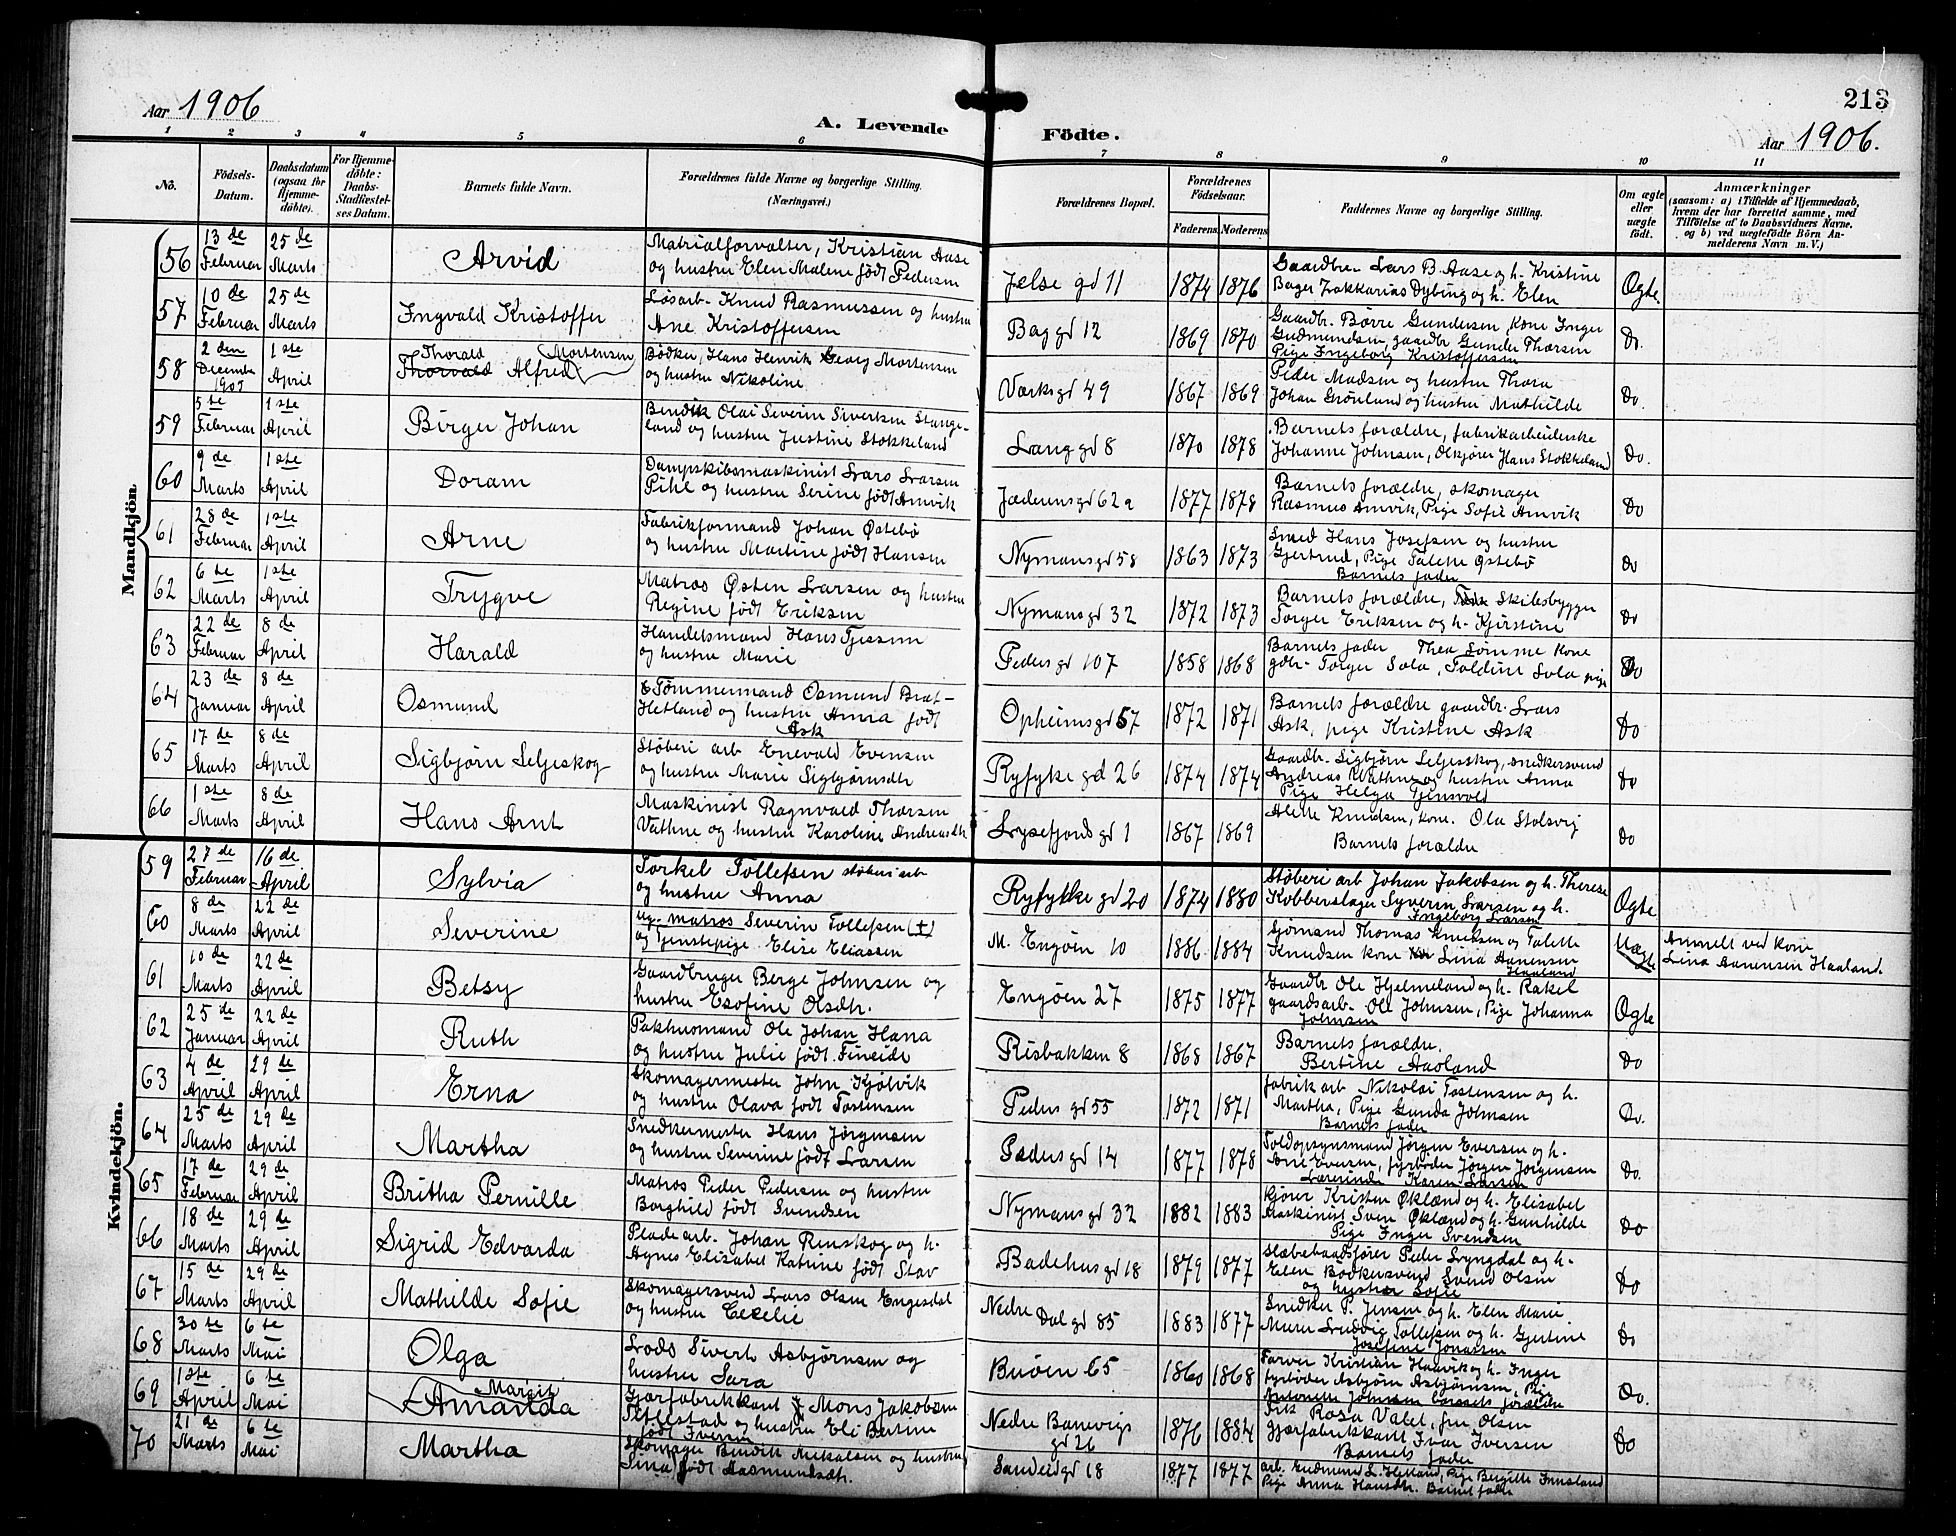 Aar 1906
A. Levende Födte.
213
Aar 1906.
1 2 3 4 5 6 7 8 9 10 11
No.
Födsels-Datum.
Daabsdatum (ogsaa for Hjemmedöbte).
For Hjemmedöbte: Daabs-Stadfæstelses Datum.
Barnets fulde Navn.
Forældrenes fulde Navne og borgerlige Stilling. (Næringsvei.)
Forældrenes Bopæl.
Forældrenes Födselsaar.
Faderens Moderens
Faddernes Navne og borgerlige Stilling.
Om ægte eller uægte födt.
Anmærkninger
(saasom: a) i Tilfælde af Hjemmedaab, hvem der har forrettet samme, med Tilföielse af to Daabsvidners Navne. og b) ved uægtefödte Börn Anmelderens Navn m. V.)
Mandkjön.
56 13de Februar 25de Marts Arvid Matrialforvalter, Kristian Aase og hustru Elen Malene født Pedersen Jelse gd 11 1874 1876 Gaardbr. Lars B. Aase og h. Kristine Bager Zakkarias Dybing og h. Elen Ægte
57 10de Februar 25de Marts Ingvald Kristoffer Løsarb. Knud Rasmussen og hustru Ane Kristoffersen Bag gd 12 1869 1870 Gaardbr. Børre Gundersen, Kone Inger Gudmundsen, gaardbr Gunder Thorsen Pige Ingeborg Kristoffersen Do.
58 2den December 1905 1ste April Thorald Mortensen Thorvald Alfred Bødker, Hans Henrik Georg Mortensen og hustru Nikoline Værks gd 49 1867 1869 Peder Madsen og hustru Thora Johan Grønlund og hustru Mathilde Do.
59 5te Februar 1ste April Birger Johan Bendik Olai Severin Sivertsen Stangeland og hustru Justine Stokkeland Lang gd 8 1870 1878 Barnets forældre, fabrikarbeiderske Johanne Johnsen, Ølkjører Hans Stokkeland Do.
60 9de Marts 1ste April Doram Dampskibsmaskinist Lars Larsen Pihl og hustru Serine født Amvik Jæderens gd 62a 1877 1878 Barnets forældre, skomager Rasmus Amvik, Pige Sofie Amvik Do
61 28de Februar 1ste April Arne Fabrikformand Johan Østebø og hustru Martine født Hansen Nymans gd 58 1863 1873 Smed Hans Josefsen og hustru Gjertrud, Pige Talette Østebø Barnets fader Do
62 6te Marts 1ste April Trygve Matros Østen Larsen og hustru Regine født Eriksen Nymans gd 32 1872 1873 Barnets forældre, Skibsbygger Torger Eriksen og h. Kjirstine Do
63 22de Februar 8de April Harald Handelsmand Hans Tjessem og hustru Marie Peders gd 107 1858 1868 Barnets fader Thea Sømme kone gdbr. Torger Sola, Toldine Sola pige Do
64 23de Januar 8de April Osmund Tømmermand Osmund Bræt-Hetland og hustru Anna født Ask Opheims gd 57 1872 1871 Barnets forældre gaardbr. Lars Ask, pige Kristine Ask Do
65 17de Marts 8de April Sigbjørn Seljeskog Støberi arb Enevald Evensen og hustru Marie Sigbjørnsdtr Ryfylke gd 26 1874 1874 Gaardbr. Sigbjørn Seljesskog, snedkersvend Andreas Wathne og hustru Anna Pige Helga Tjensvold Do
66 1ste Marts 8de April Hans Arnt Maskinist Ragnvald Thorsen Vathne og hustru Karoline Andreasdtr Lysefjords gd 1 1867 1869 Alette Knudsen, kone. Ola Stolsvig Barnets forældre Do
Kvindekjön.
59 27de Februar 16de April Sylvia Torkel Tollefsen støberiarb og hustru Anna Ryfylke gd 20 1874 1880 Støberi arb Johan Jakobsen og h. Therese Kobberslager Syverin Larsen og h. Ingeborg Larsen Ægte
60 8de Marts 22de April Severine Ug. matros Severin Tollefsen (†) og Tjenstepige. Elise Eliassen M. Engøen 10 1886 1884 Sjømand Thomas Knudsen og Talette Knudsen kone Lina Aanensen Haaland Uægte Anmelt ved kone Lina Aanensen Haaland.
61 10de Marts 22de April Betsy Gaardbruger Berge Johnsen og hustru Esofine Olsdtr. Engøen 27 1875 1877 Gaardbr Ole Hjelmeland og h. Rakel gaardsarb. Ole Johnsen, Pige Johanna Johnsen Ægte
62 25de Januar 22de April Ruth Pakhusmand Ole Johan Hana og hustru Julie født Fineide Risbakken 8 1868 1867 Barnets forældre. Bertine Aasland Do
63 4de April 29de April Erna Skomagermester John Kjølvik og hustru Olava født Tostensen Peders gd 55 1872 1871 fabrik arb Nikolai Tostensen og h. Martha, Pige Gunda Johnsen Barnets fader Do.
64 25de Marts 29de April Martha Snedkermester Hans Jørgensen og hustru Severine født Larsen Pæders gd 14 1877 1878 Toldopsynsmand Jørgen Eversen og h. Ane Eversen, fyrbøder Jørgen Jørgensen Lærerinde Karen Larsen Do.
65 17de Februar 29de April Britha Pernille Matros Peder Pedersen og hustru Borghild født Svendsen Nymans gd 32 1882 1883 kjører Kristen Økland og h. Elisabet Maskinist Sven Økland og h. Gunhilde Pige Inger Svendsen Do
66 18de Marts 29de April Sigrid Edvarda Pladearb. Johan Renskog og h. Agnes Elisabet Katrine født Stav Badehus gd 18 1879 1877 Slæbebaadsfører Peder Lyngdal og h. Elen Bødkersvend Svend Olsen og hustru Sofie Do
67 15de Marts 29de April Mathilde Sofie Skomagersvend Lars Olsen Engesdal og hustru Cecelie Nedre Dal gd 85 1883 1877 Snedker P. Jensen og h. Elen Marie Murer Ludvig Tollefsen og h. Gjertine Josefine Jonassen Do
68 30te Marts 6te Mai Olga Lods Sivert Asbjørnsen og hustru Sara Buøen 65 1860 1868 Farver Kristian Haavik og h. Inger fyrbøder Asbjørn Asbjørnsen, Pige Antonette Johnsen barnets forældre Do.
69 1ste April 6te Mai Margit Amanda Gjærfabrikkant Mons Jakobsen Titlestad og hustru Eli Bertine født Iversen Nedre Banevigs gd 26 1876 1884 Frk Rosa Valet, fru Olsen Gjærfabrikkant Ivar Iversen Barnets fader Do
70 21de Marts 6te Mai Martha Skomager Bendik Mikalsen og hustru Lina født Aasmundsdtr. Sandeid gd 18 1877 1877 arb. Gudmund L. Hetland, Pige Birgitte Innsland Pige Anna Hansdtr. Barnets fader